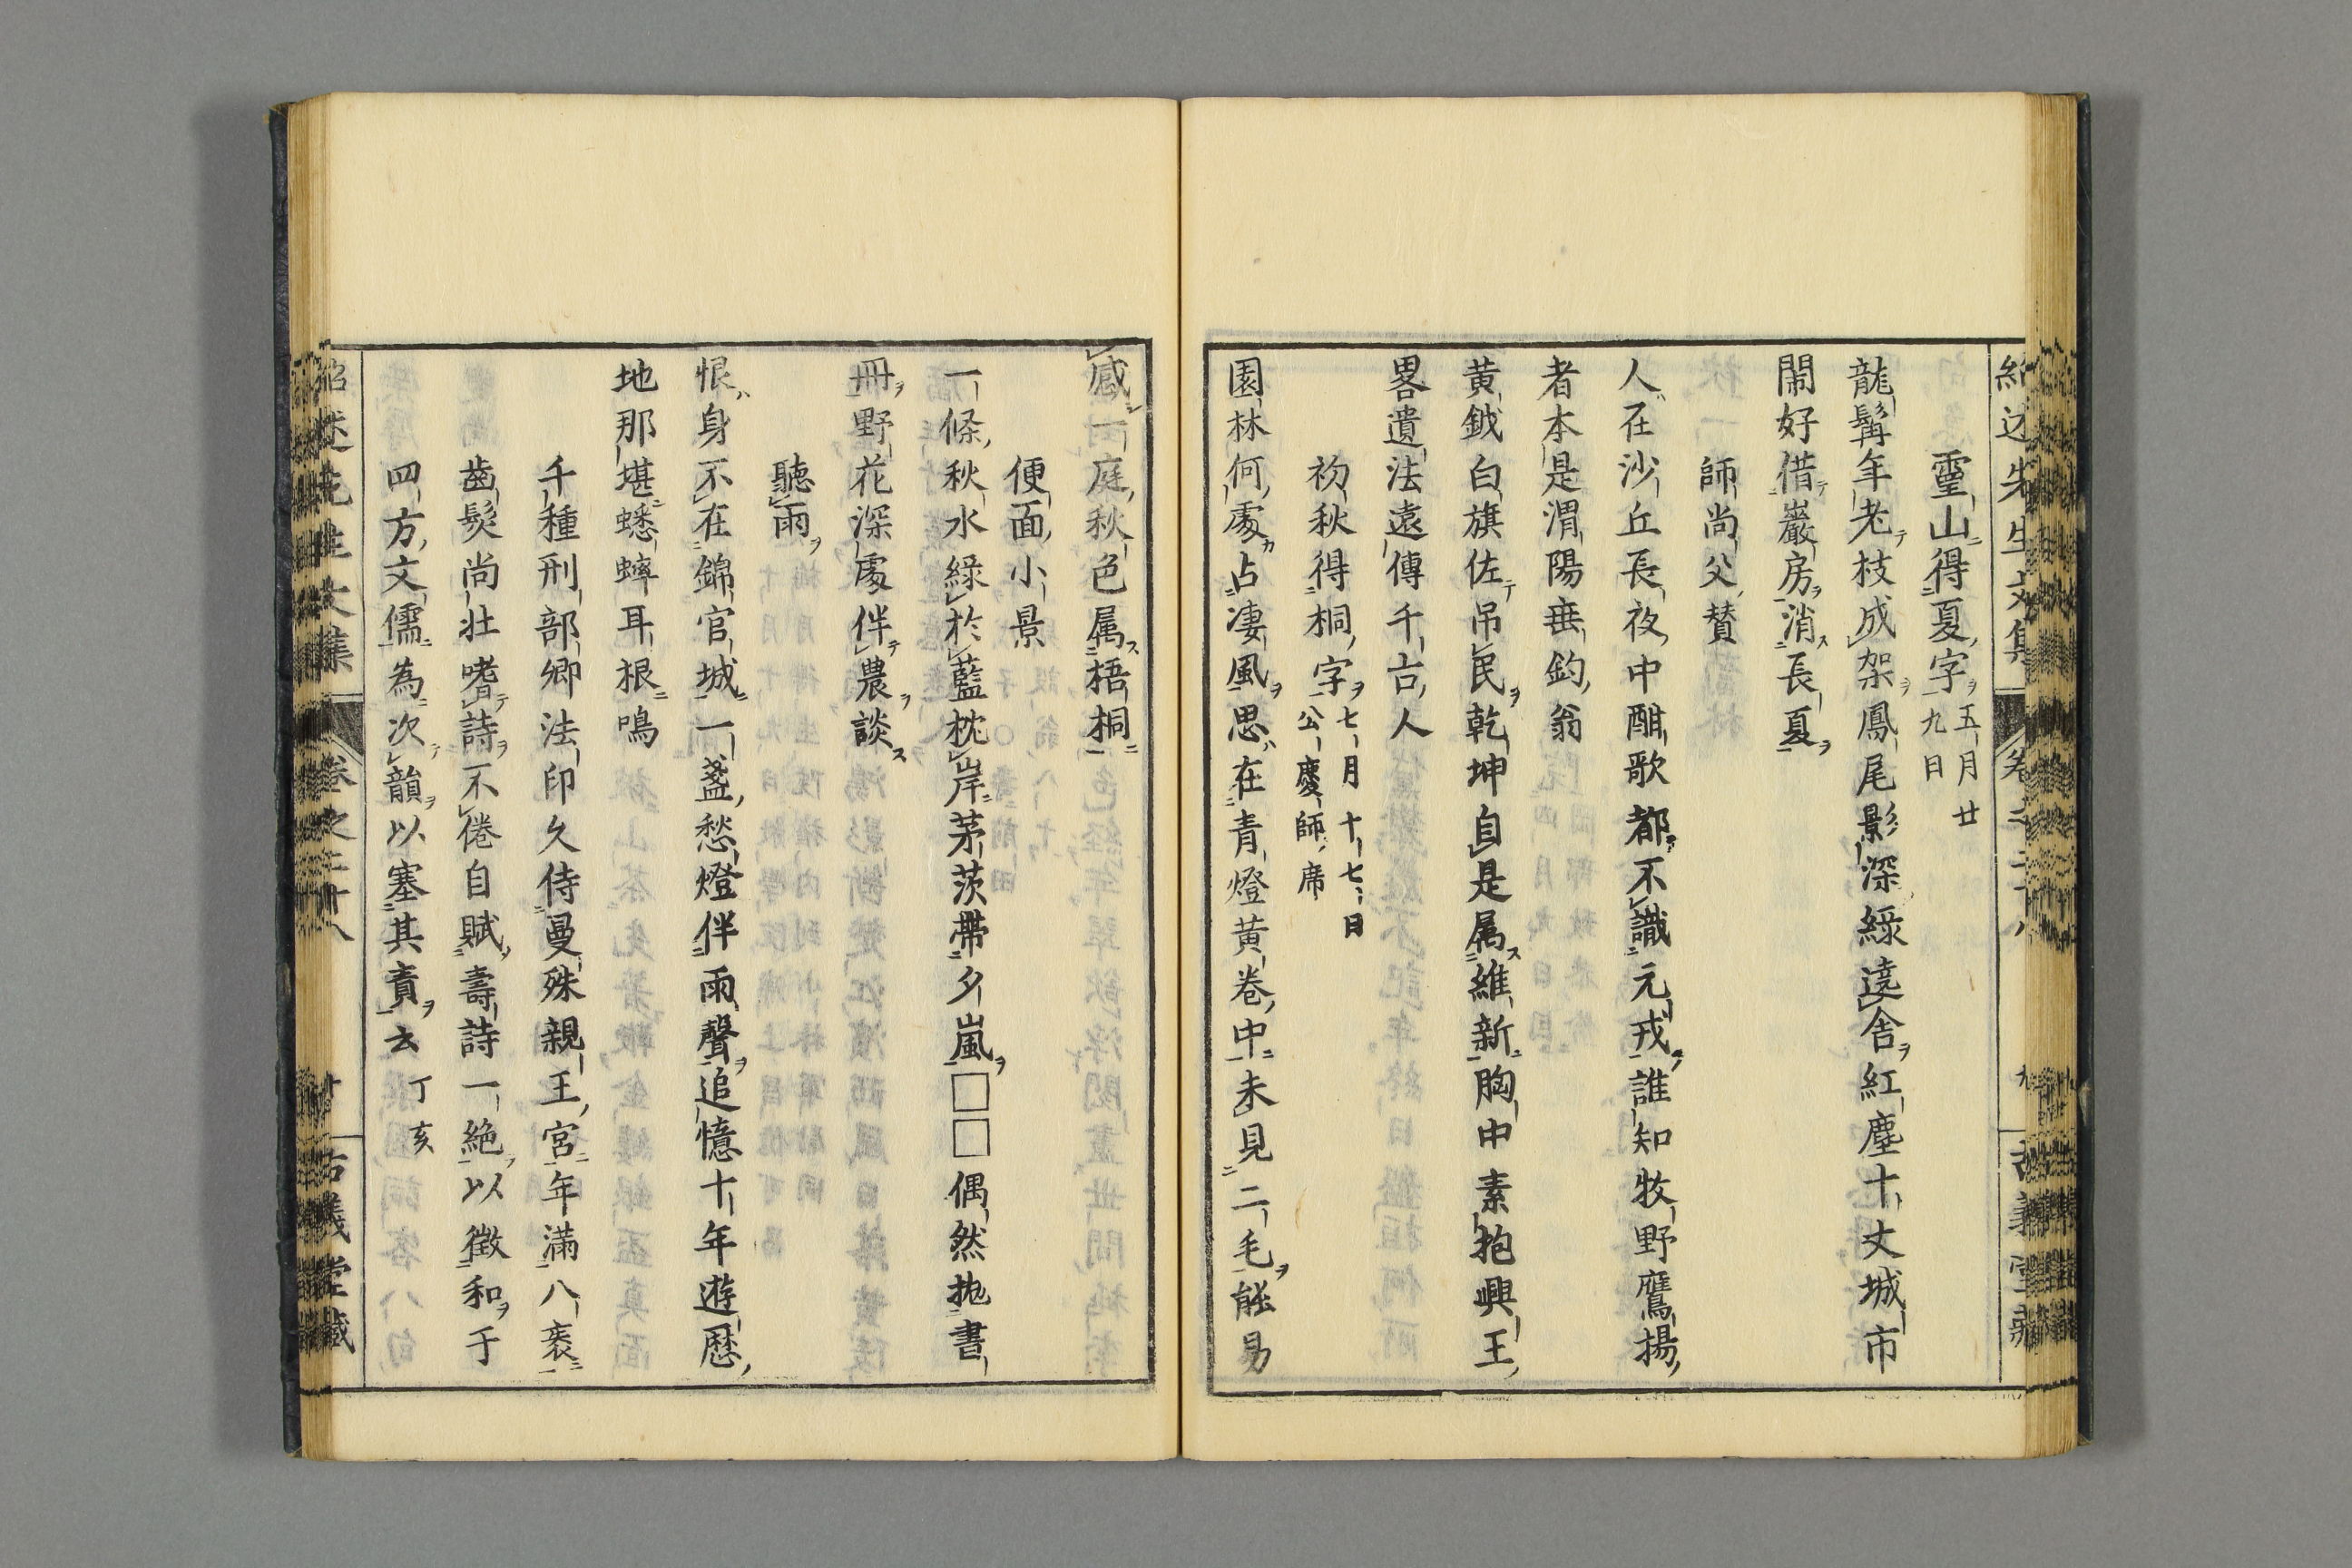 紹述先生文集 卷之二十八 九 古義堂藏
靈山得夏字 五月廿九日
龍髯年老枝成架鳳尾影深綠遶舎紅塵十丈城市
閙好借巖房消長夏
師尚父賛
人在沙丘長夜中酣歌都不識元戎誰知牧野鷹揚
者本是渭陽垂釣翁
黄鉞白旗佐吊民乾坤自是属維新胸中素抱興王
畧遺法遠傳千古人
初秋得桐字 七月十七日公慶師席
園林何處占凄風思在青燈黄卷中未見二毛能易
感一庭秋色属梧桐
便面小景
一條秋水綠於藍枕岸茅茨帶夕嵐□□偶然抛書
冊野花深處伴農談
聽雨
恨身不在錦官城一盞愁燈伴雨聲追憶十年遊歷
地那堪蟋蟀耳根鳴
千種刑部卿法印久侍曼殊親王宮年滿八袠
齒髮尚壯嗜詩不倦自賦壽詩一絶以徴和于
四方文儒為次韻以塞其責云 丁亥
紹述先生文集 卷之二十八 十 古義堂藏